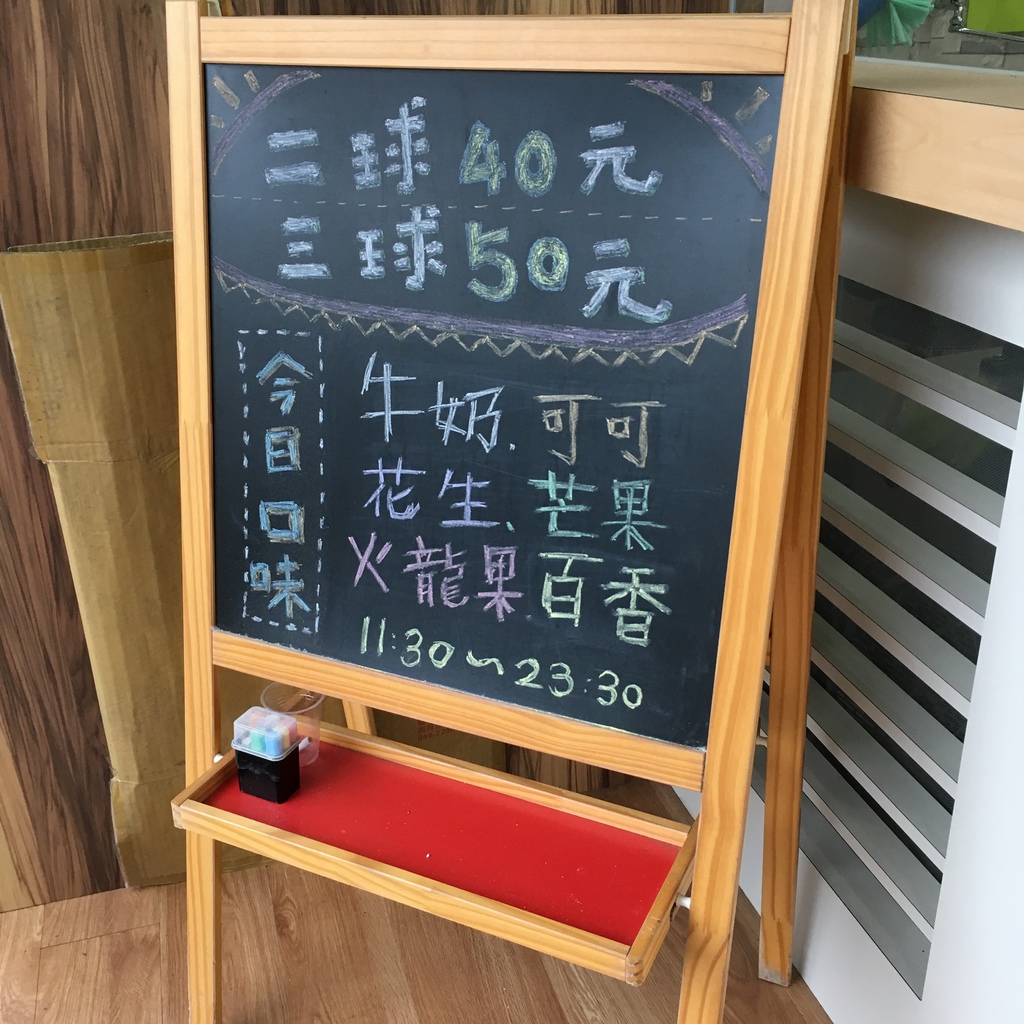 二球40元
三球50元
今日口味
牛奶、可可
花生、芒果
火龍果百香
11:30~23:30